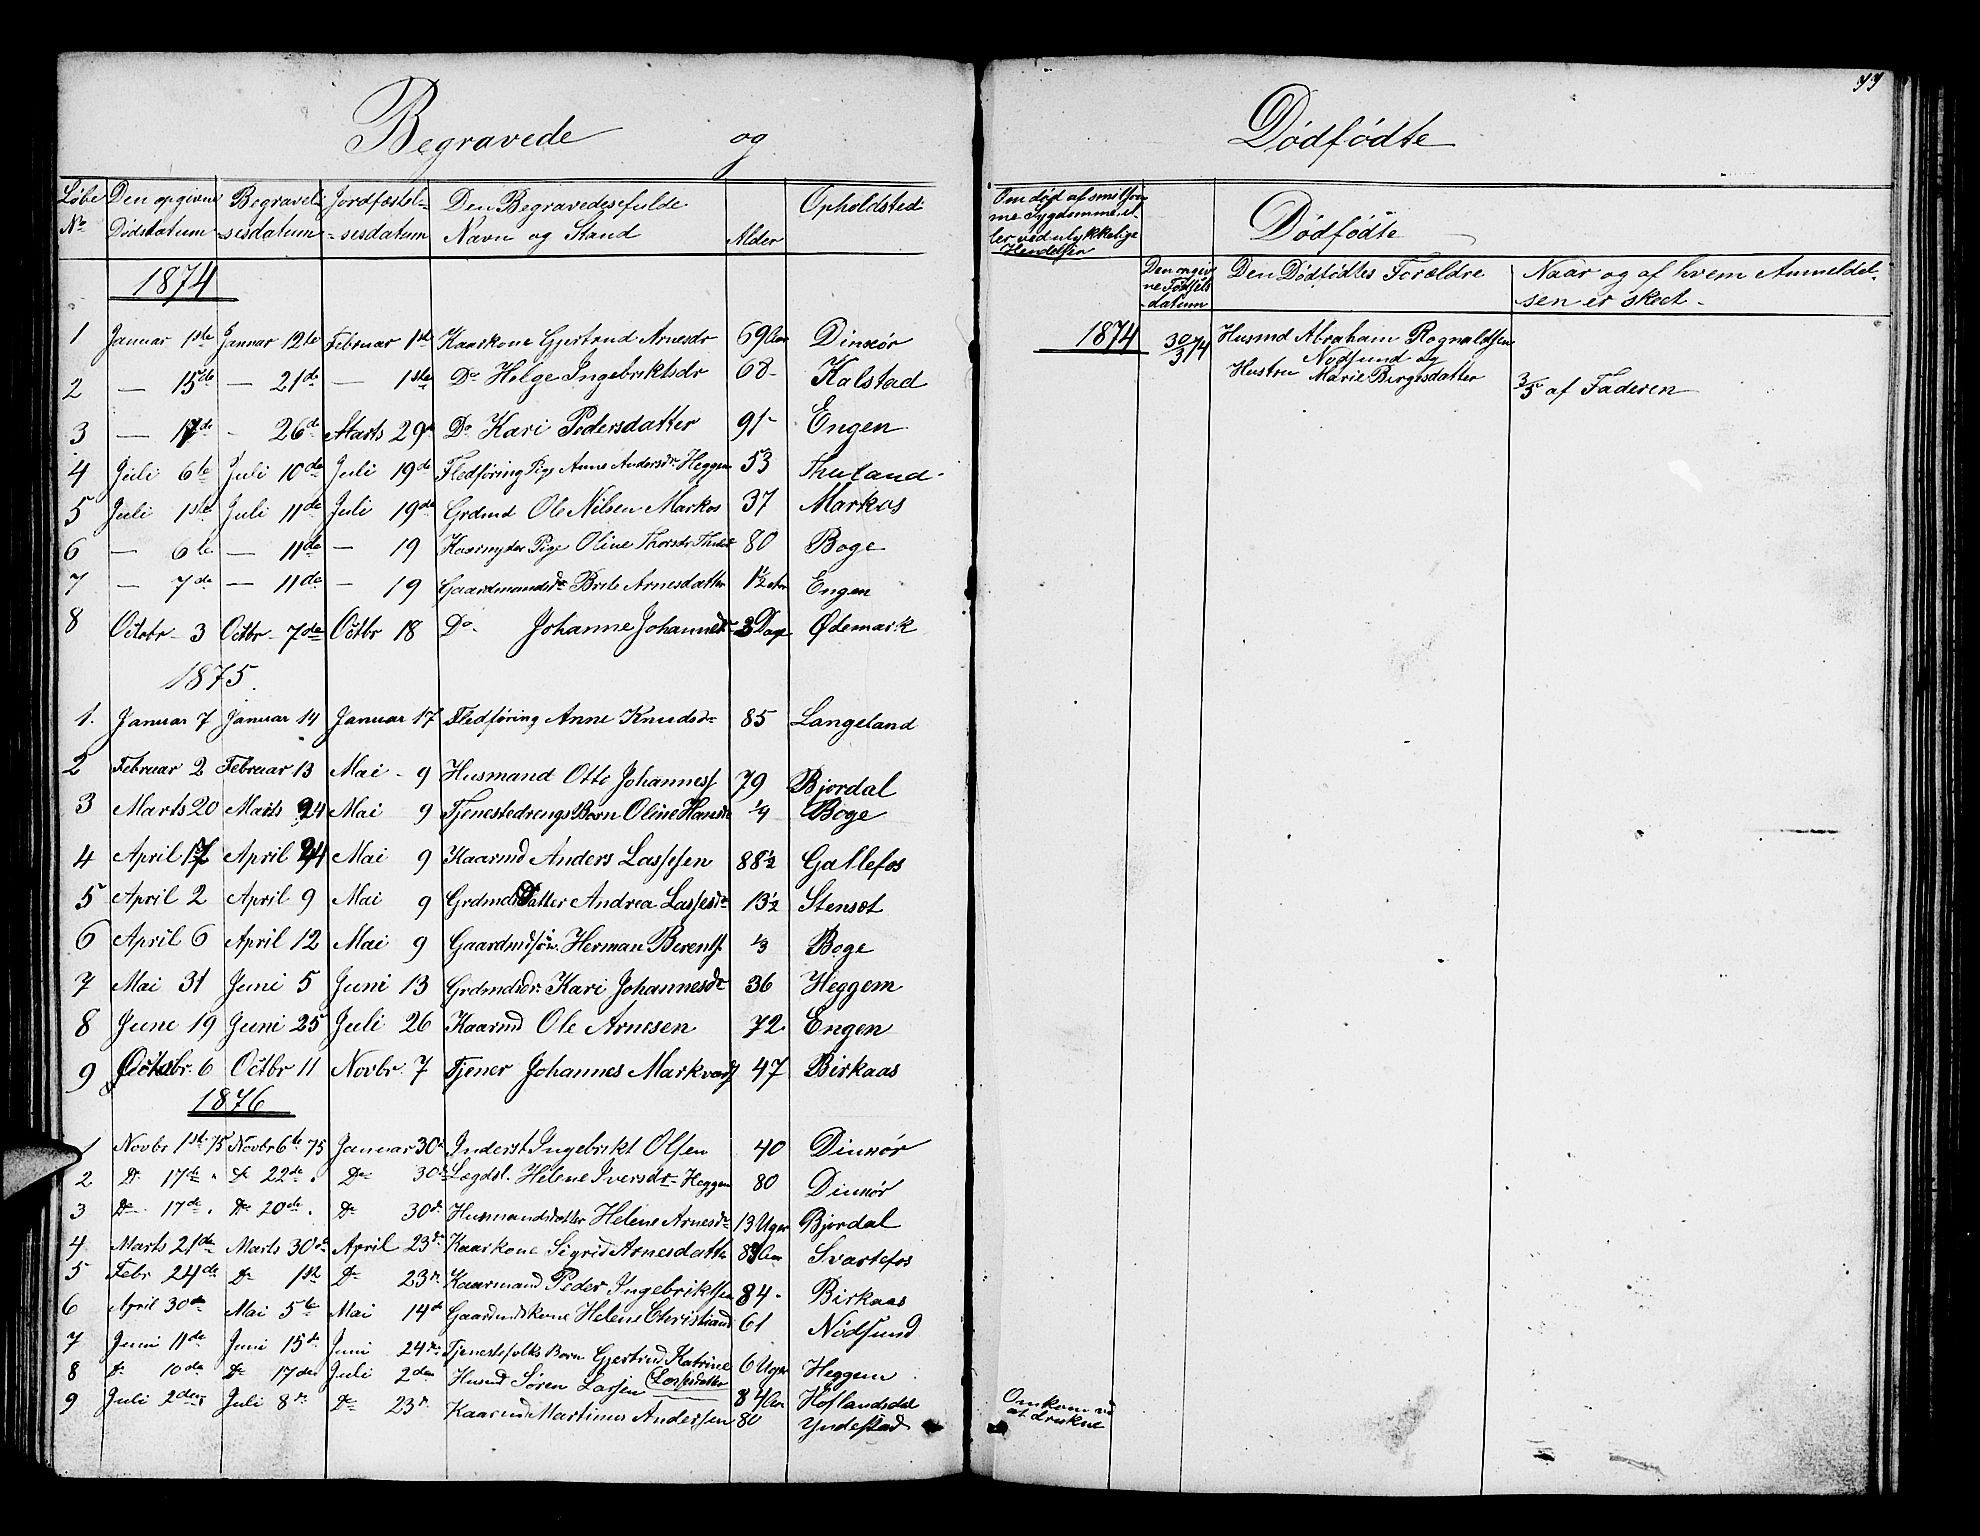 77
Begravede og Dødfødte
Løbe No. | Den opgivne Dødsdatum | Begravelsesdatum | Jordfæstelsesdatum | Den Begravedes fulde Navn og Stand | Alder | Opholdsted | Om død af smitsomme Sygdomme eller ved ulykkelige Hendelser
Dødfødte
Den opgivne Fødselsdatum | Den Dødfødtes Forældre | Naar og af hvem Anmeldelsen er skeet
1874
1 Januar 1ste Januar 12te Februar 1ste Kaarkone Gjertrud Arnesdr 69 Aar Dinnør
2 — 15de — 21de — 1ste Do Helge Ingebriktsdr 68 Kalstad
3 — 17de - 26de Marts 29de Do Kari Pedersdatter 91 Engen
4 Juli 6te Juli 10de Juli 19de Fledføring Pige Anne Andersdr Heggem 53 Thuland
5 Juli 1ste Juli 11de Juli 19de Grdmd Ole Nilsen Markos 37 Markos
6 — 6te — 11de — 19 Kaarnyder Pige Oline Thorsdr 80 Boge
7 — 7de — 11de — 19 Gaardmandsdr Brite Arnesdatter 1½ Engen
8 Octobr 3 Octbr 7de Octbr 18 Do Johanne Johannesdr 3 Dage Ødemark
1875
1. Januar 7 Januar 14 Januar 17 Fledføring Anne Knudsdr 85 Langeland
2 Februar 2 Februar 13 Mai 9 Husmand Otto Johanness 79 Bjordal
3 Marts 20 Marts 24 Mai 9 Tjenestedrengs Barn Oline Hansdr ¼ Boge
4 April 17 April 24 Mai 9 Kaarmd Anders Lassesen 88½ Gallefos
5 April 2 April 9 Mai 9 Grdmds Datter Andrea Lassesdr 13½ Stenset
6 April 6 April 12 Mai 9 Gaardmdsøn Herman Berents. ⅓ Boge
7 Mai 31 Juni 5 Juni 13 Grdmdsdr. Kari Johannesdr 36 Heggem
8 June 19 Juni 25 Juli 26 Kaarmd Ole Arnesen 72 Engen
9 Octobr. 6 Octbr 11 Novbr. 7 Tjener Johannes Markvards 47 Birkaas
1876
1 Novbr 1ste 75 Novbr 6te 75 Januar 30de Inderst Ingebrikt Olsen 40 Dinnør
2 Do 17de Do 22de Do 30de Lægdsl. Helene Iversdr Heggem 80 Dinnør
3 Do 17de Do 20de Do 30de Husmandsdatter Helene Arnesdr 13 Uger Bjordal
4 Marts 21de Marts 30de April 23de Kaarkone Sigrid Arnesdatter Svartefos
5 Febr 24de Do 1ste Do 23de Kaarmand Peder Ingebriktsen 84 Birkaas
6 April 30de Mai 5te Mai 14de Gaardmdskone Helene Christiansd 61 Nødsund
7 Juni 11de Juni 15de Juni 24de Tjenestefolks Barn Gjertrud Katrine Lassesdatter 6 Uger Heggem
8 Do 10de Do 17den Juli 2den Husmd Søren Larsen 84 Aar Hoflandsdal
9 Juli 2den Juli 8de Do 23de Kaarmd Martinus Andersen 80 Yndestad
Omkom ved at drukne
1874
30/3 74 Husmd Abraham Rognaldsen
Nødsund og
Hustru Marie Birgesdatter
3/5 af Faderen